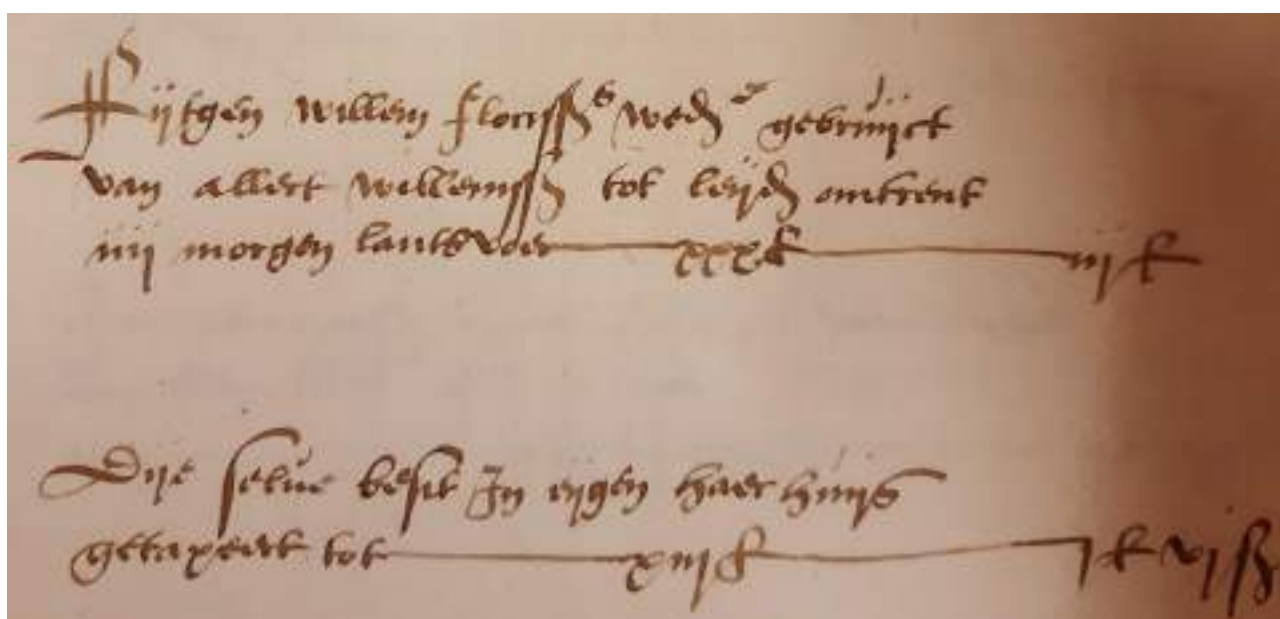 Fijtgen willem florisss wede gebruijct
van allert willemss tot leijd omtrent
iiij morgen lants voer xxx £ iij £
Dije selve besit In eijgen haer huijs
getaxeert tot xiij £ j £ vj ß